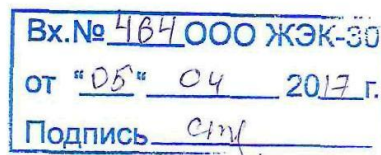 Вх.№ 464 ООО ЖЭК-30
от "05" 04 2017 г.
Подпись